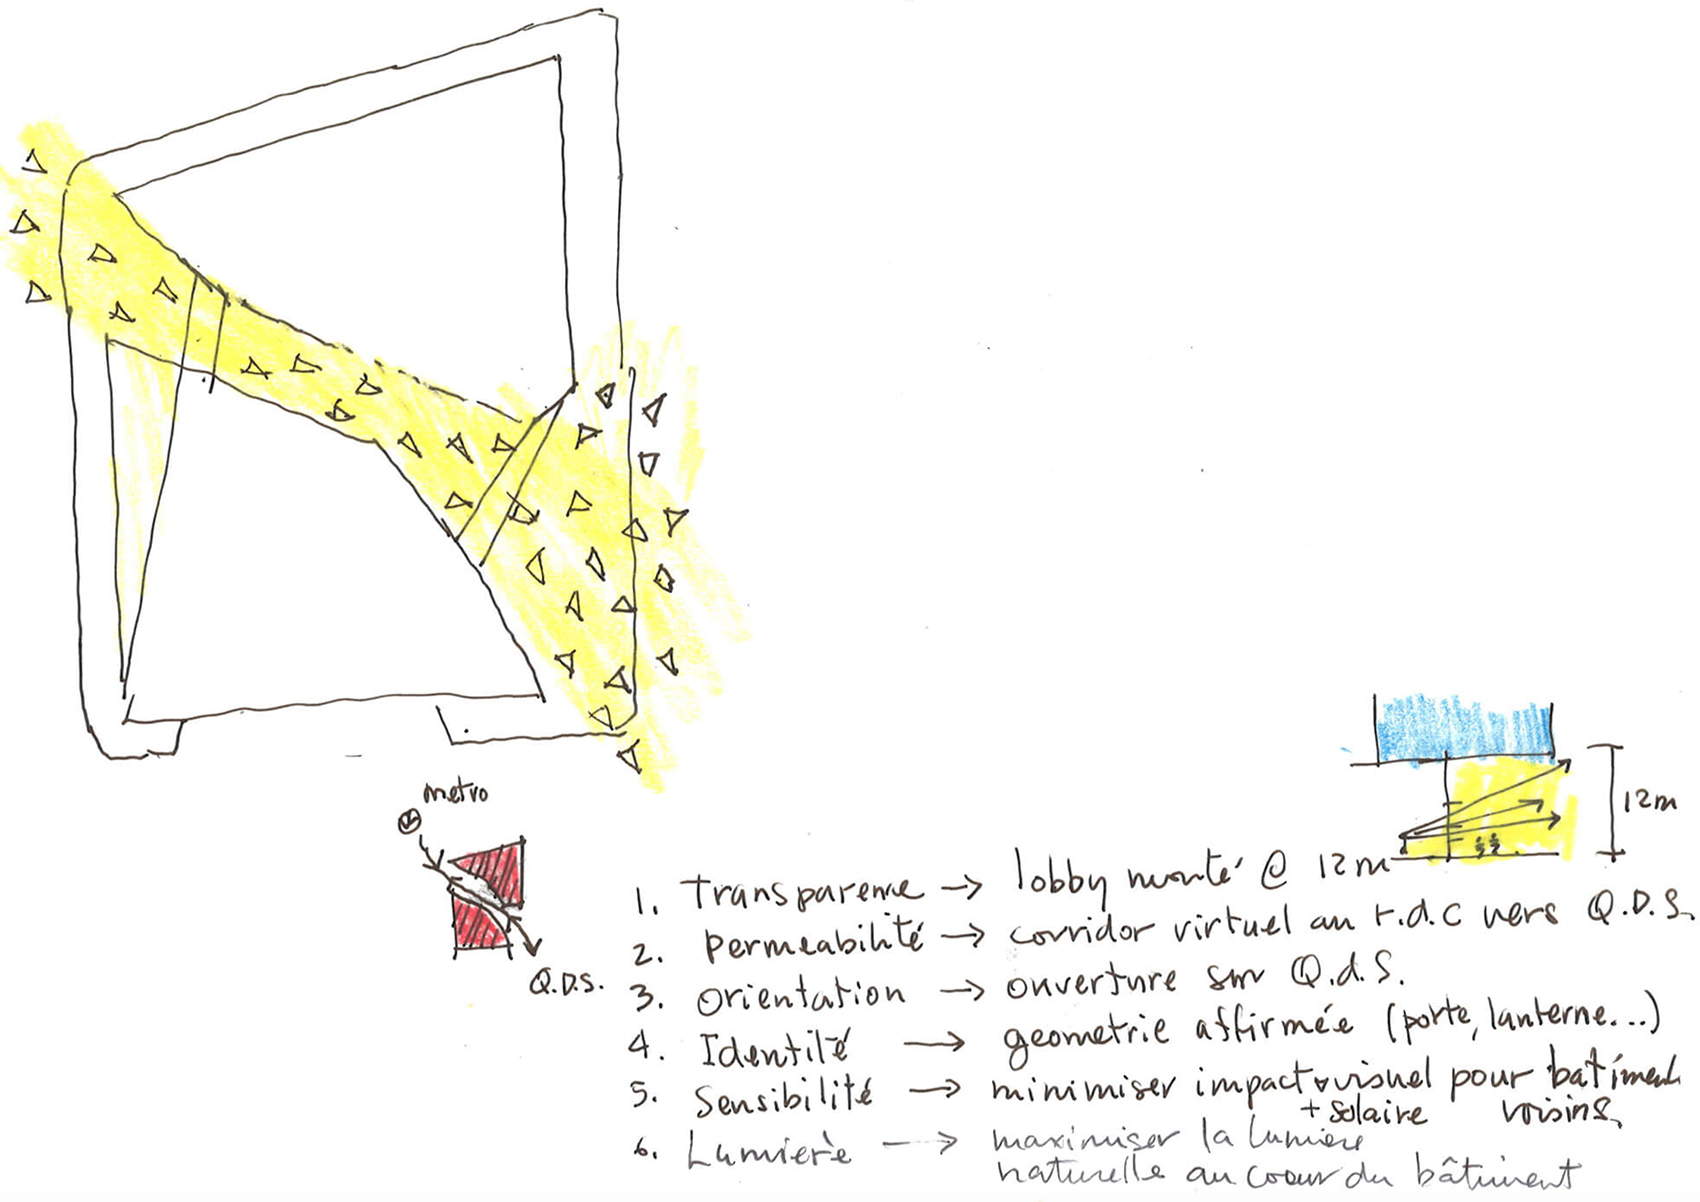 metro
M
Q.D.S.
12m
1. Transparence → lobby monté @ 12m
2. Permeabilité → corridor virtuel au r.d.c vers Q.D.S.
3. Orientation → ouverture sur Q.d.S.
4. Identité → geometrie affirmée (porte, lanterne...)
5. Sensibilité → minimiser impact visuel pour batiments
+ solaire voisins
6. Lumierè → maximiser la lumiere
naturelle au coeur du bâtiment